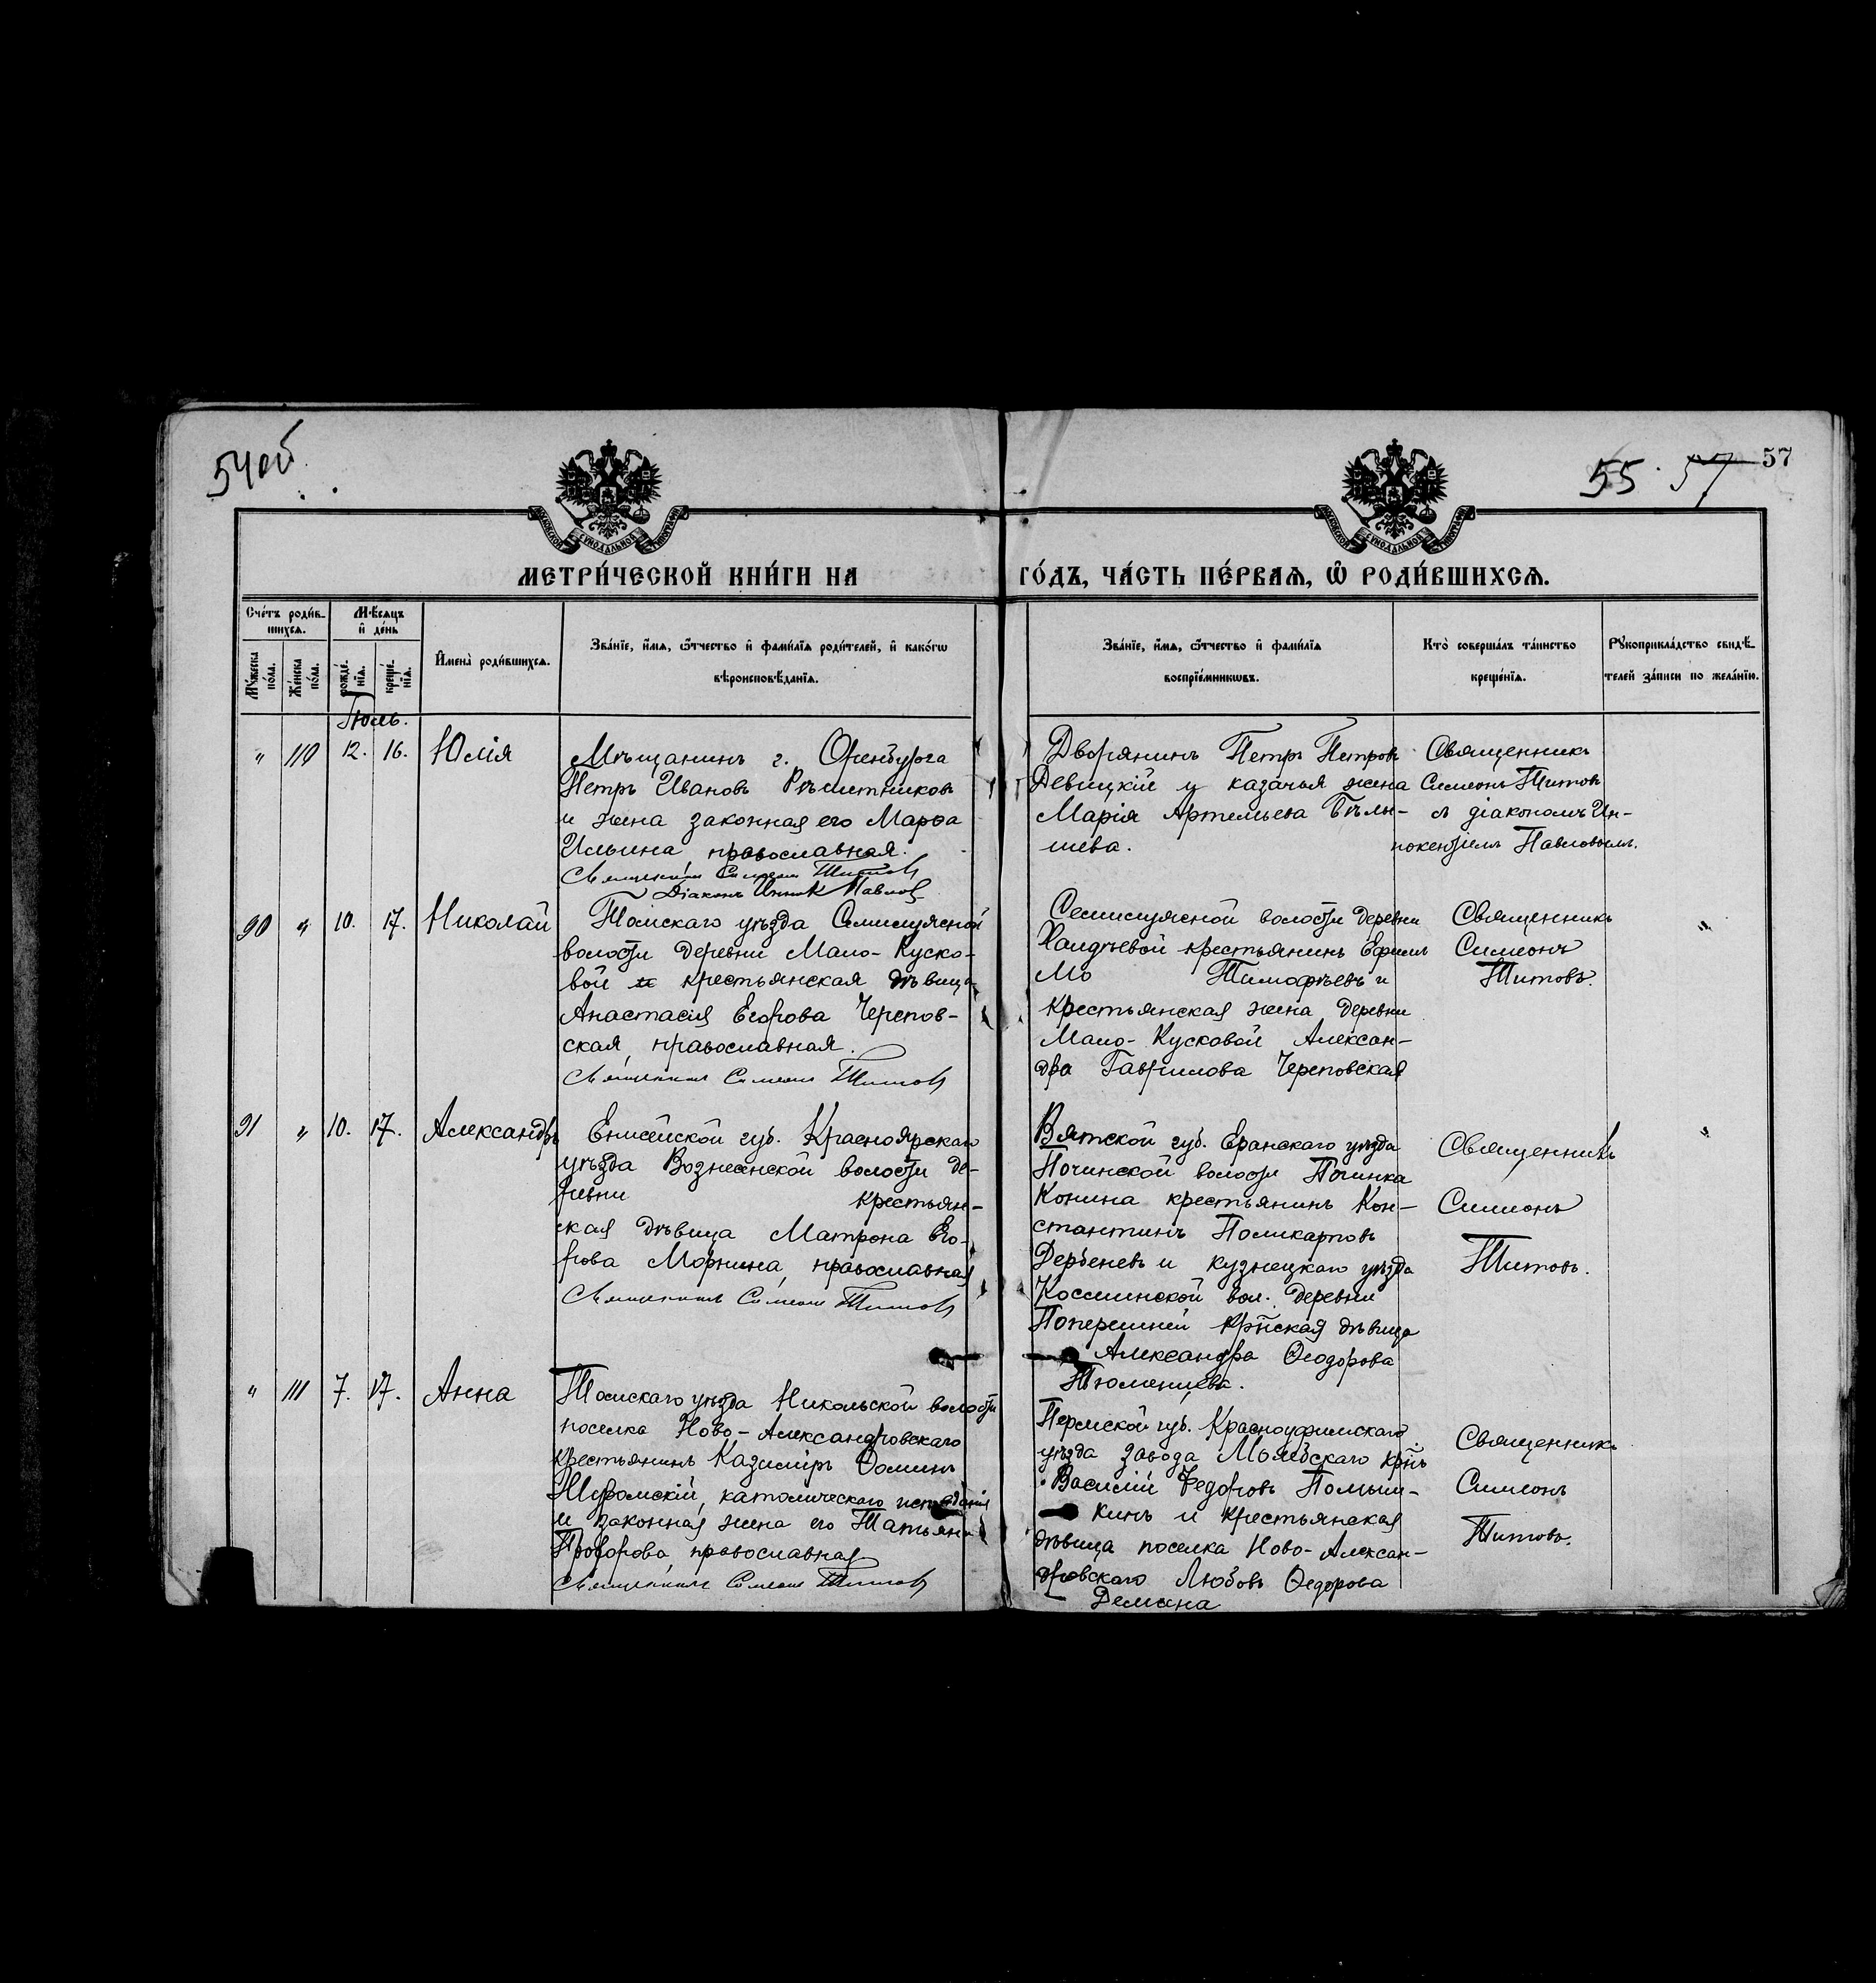 54об
55. 57 57
МЕТРИ́ЧЕСКОЙ КНИ́ГИ НА ГО́ДЪ, ЧА́СТЬ ПЕ́РВАѦ, Ѡ҆ РОДИ́ВШИХСѦ.
Сче́тъ роди́в-
шихсѧ.
Мѣ́сѧцъ
и҆ де́нь
Мꙋ́жеска по́ла.
Же́нска по́ла.
рожде́-
нїѧ.
креще́-
нїѧ.
И҆мена̀ роди́вшихсѧ.
Зва́нїе, и҆́мѧ, ѻ҆́тчество и҆ фами́лїѧ роди́телей, и҆ како́гѡ
вѣроисповѣ́данїѧ.
Зва́нїе, и҆́мѧ, ѻ҆́тчество и҆ фами́лїѧ
воспрїе́мникѡвъ.
Кто̀ соверша́лъ та́инство
креще́нїѧ.
Рꙋкоприкла́дство свидѣ́-
телей за́писи по жела́нїю.
Іюль.
" 110 12. 16. Юлія
Мѣщанинъ г. Оренбурга
Петръ Ивановъ Рѣшетниковъ
и жена законная его Марѳа
Ильина, православная.
Священникъ Симеон Титов
Діаконъ Павлов
Дворянинъ Петръ Петровъ
Девицкій и казачья жена
Марія Артемьева Бѣлы-
шева.
Священникъ
Симеонъ Титовъ
съ діакономъ Ин-
нокентіемъ Павловымъ.
90 " 10. 17. Николай
Томскаго уѣзда Семилужной
волости деревни Мало-Куско-
вой крестьянская дѣвица
Анастасія Егорова Черепов-
ская, православная.
Священник Симеон Титов
Семилужной волости деревни
Халдѣевой крестьянинъ Ефимъ
Мо Тимофѣевъ и
крестьянская жена деревни
Мало-Кусковой Алексан-
дра Гаврилова Череповская
Священникъ
Симеонъ
Титовъ.
"
91 " 10. 17. Александръ
Енисейской губ. Красноярскаго
уѣзда Вознесенской волости де-
ревни крестьян-
ская дѣвица Матрона Его-
рова Моркина, православная
Священник Симеон Титов
Вятской губ. Еранскаго уѣзда
Починской волости Починка
Конина крестьянинъ Кон-
стантинъ Поликарповъ
Дербеневъ и кузнецкаго уѣзда
Косьминской вол. деревни
Поперешней кр̃нская дѣвица
Александра Ѳеодорова
Тюменцева.
Священникъ
Симеонъ
Титовъ.
"
" 111 7. 17. Анна
Томскаго уѣзда Никольской волости
поселка Ново-Александровскаго
крестьянинъ Казиміръ Ѳоминъ
Жеромскій, католическаго исповѣданія
и законная жена его Татьяна
Прохорова, православная
Священник Симеон Титов
Пермской губ. Красноуфимскаго
уѣзда завода Молебскаго кр̃нъ
Василій Федоровъ Помыт-
кинъ и крестьянская
дѣвица поселка Ново-Алексан-
дровскаго Любовь Ѳедорова
Демина
Священникъ
Симеонъ
Титовъ.